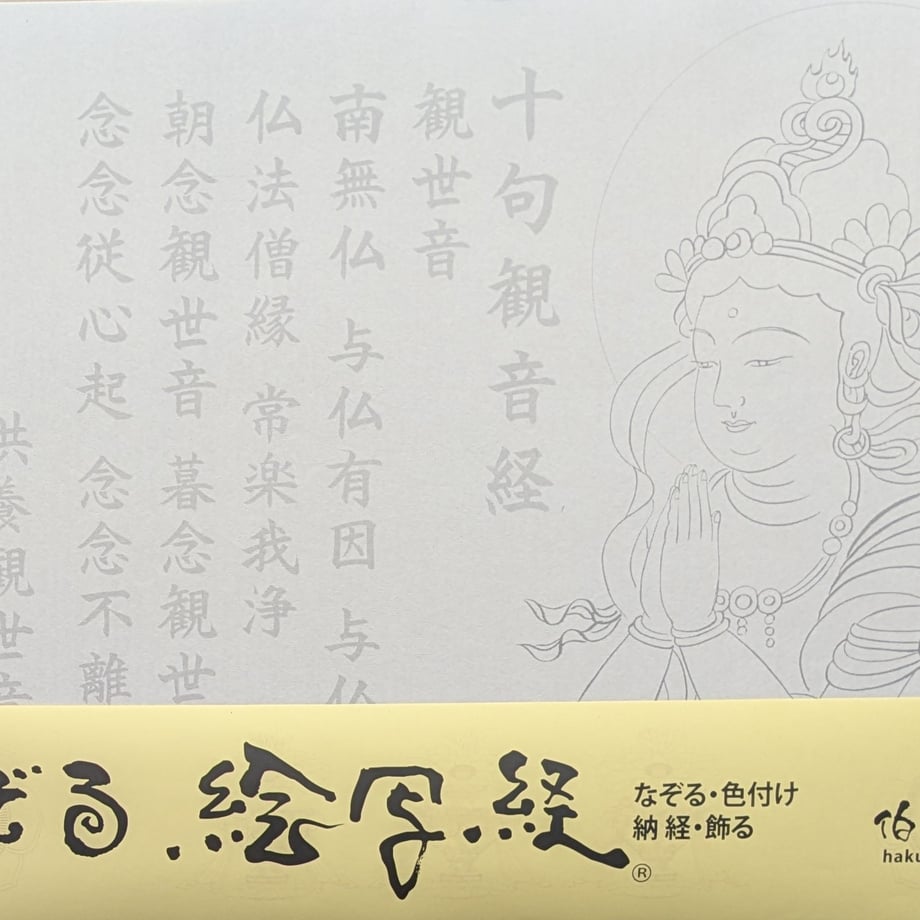 十句観音経
観世音
南無仏 与仏有因 与仏
仏法僧縁 常楽我浄
朝念観世音 暮念観世
念念従心起 念念不離
供養観世音
ぞる・絵写経®
なぞる・色付け
納経・飾る
伯
haku